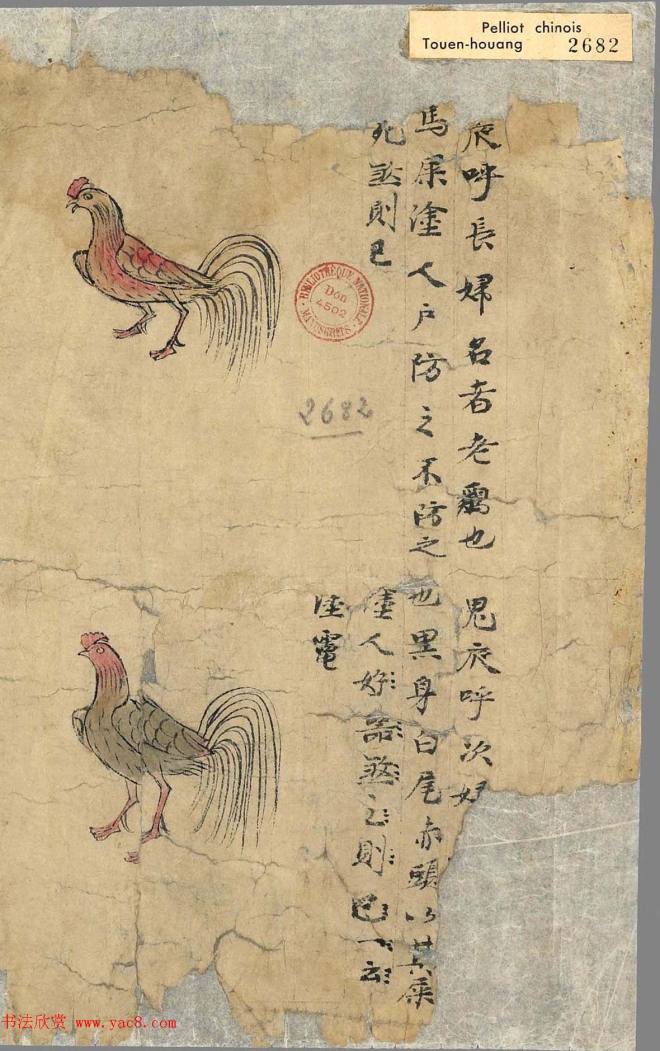 Pelliot chinois
Touen-houang 2682
夜呼長婦名者老也
馬屎塗人户防之不防之
死煞則已
鬼夜呼次婦
也黑身白尾赤頭以其屎
塗人好器煞之則已一云
塗
BIBLIOTHÈQUE NATIONALE
Don
4502
MANUSCRITS
2682
书法欣赏 www.yac8.com